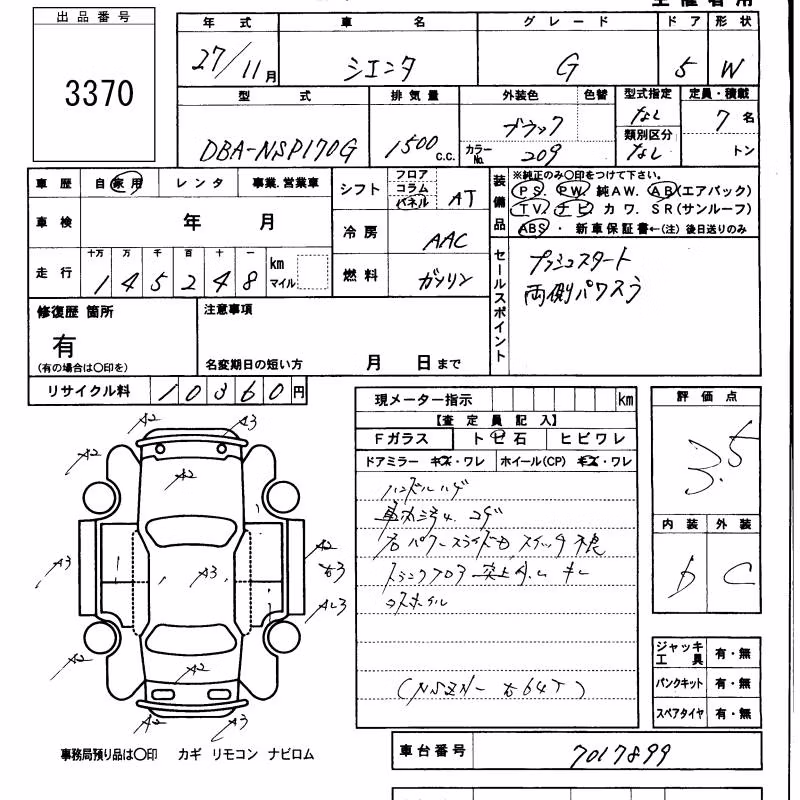 出品番号
3370
年式 車名 グレード ドア 形状
27/11月 シエンタ G 5 W
型式 排気量 外装色 色替 型式指定 定員・積載
DBA-NSP170G 1500c.c. ブラック カラーNo. 209 なし 7名
類別区分 なし トン
車歴 自家用 レンタ 事業.営業車
車検 年 月
走行 十万 万 千 百 十 一
145248 km マイル
シフト フロア コラム パネル AT
冷房 AAC
燃料 ガソリン
装備品
※純正のみ〇印をつけて下さい。
PS. PW. 純AW. AB(エアバック)
TV. ナビ カワ. SR(サンルーフ)
ABS・新車保証書←(注)後日送りのみ
セールスポイント
プッシュスタート
両側パワスラ
修復歴 箇所
有
(有の場合は〇印を)
注意事項
名変期日の短い方 月 日まで
リサイクル料 10360円
現メーター指示 km
【査定員記入】
Fガラス トビ石 ヒビワレ
ドアミラー キズ・ワレ ホイール(CP) キズ・ワレ
ハンドルハゲ
右パワースライドドア スイッチ不良
トランクフロア
評価点
3.5
内装 外装
D C
A2 A3
A2
A2
A3 A3 A2
A3
A2 A2
A2 A3
ジャッキ工具 有・無
パンクキット 有・無
スペアタイヤ 有・無
事務局預り品は〇印 カギ リモコン ナビロム
車台番号 7017899